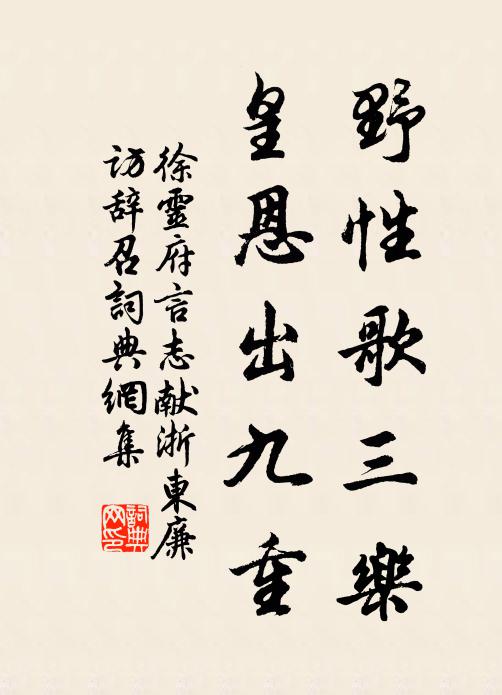 野性歌三樂
皇恩出九重
徐靈府言志献浙東廉
訪辞召詞典網集
詞典
网印